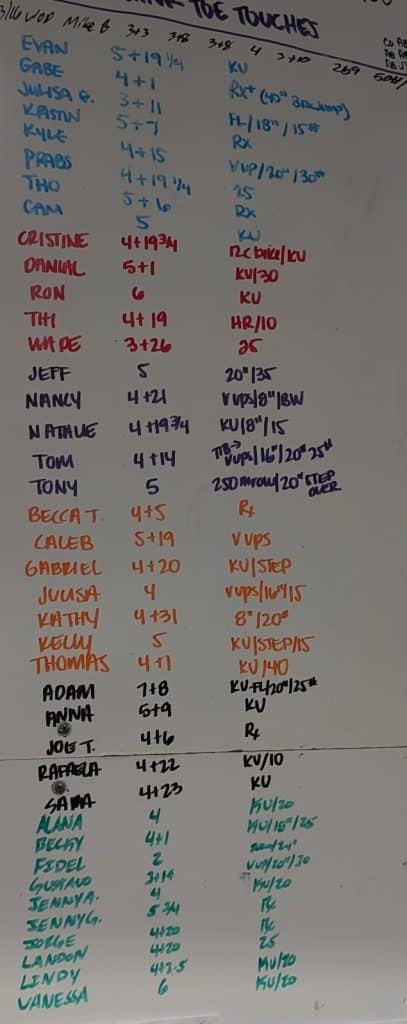 TOE TOUCHES
3/16 WOD Mike B 3+3 3+8 3+8 4 3+10 269
EVAN 5+19 1/4 KU
GABE 4+1 RX+
JULISA G. 3+11 FL/18"/15#
KRISTIN 5+7 RX
KYLE 4+15 VUP/20"/30#
PRABS 4+19 1/4 25
THO 5+6 RX
CAM 5 KU
CRISTINE 4+19 3/4 12c bike/KU
DANIAL 5+1 KU/30
RON 6 KU
THI 4+19 HR/10
WADE 3+26 25
JEFF 5 20"/35
NANCY 4+21 V ups/8"/BW
NATALIE 4+19 3/4 KU/8"/15
TOM 4+14 TTB→ Vups/16"/20" 25#
TONY 5 250m row/20" STEP OVER
BECCA T. 4+5 Rx
CALEB 5+19 V UPS
GABRIEL 4+20 KU/STEP
JULISA 4 V ups/16"/15
KATHY 4+31 8"/20#
KELLY 5 KU/STEP/15
THOMAS 4+1 KU/40
ADAM 7+8 KU-FL/20"/25#
ANNA 5+9 KU
JOE T. 4+6 Rx
RAFAELA 4+22 KU/10
SABA 4+23 KU
ALANA 4 KU/20
BECKY 4+1 KU/15"/25
FIDEL 2
GUSTAVO 3+19 VUP/20"/30
JENNY A. 4 KU/20
JENNY G. 5 3/4 Rx
JORGE 4+20 Rx
LANDON 4+20 25
LINDY 4+3.5 KU/20
VANESSA 6 KU/20